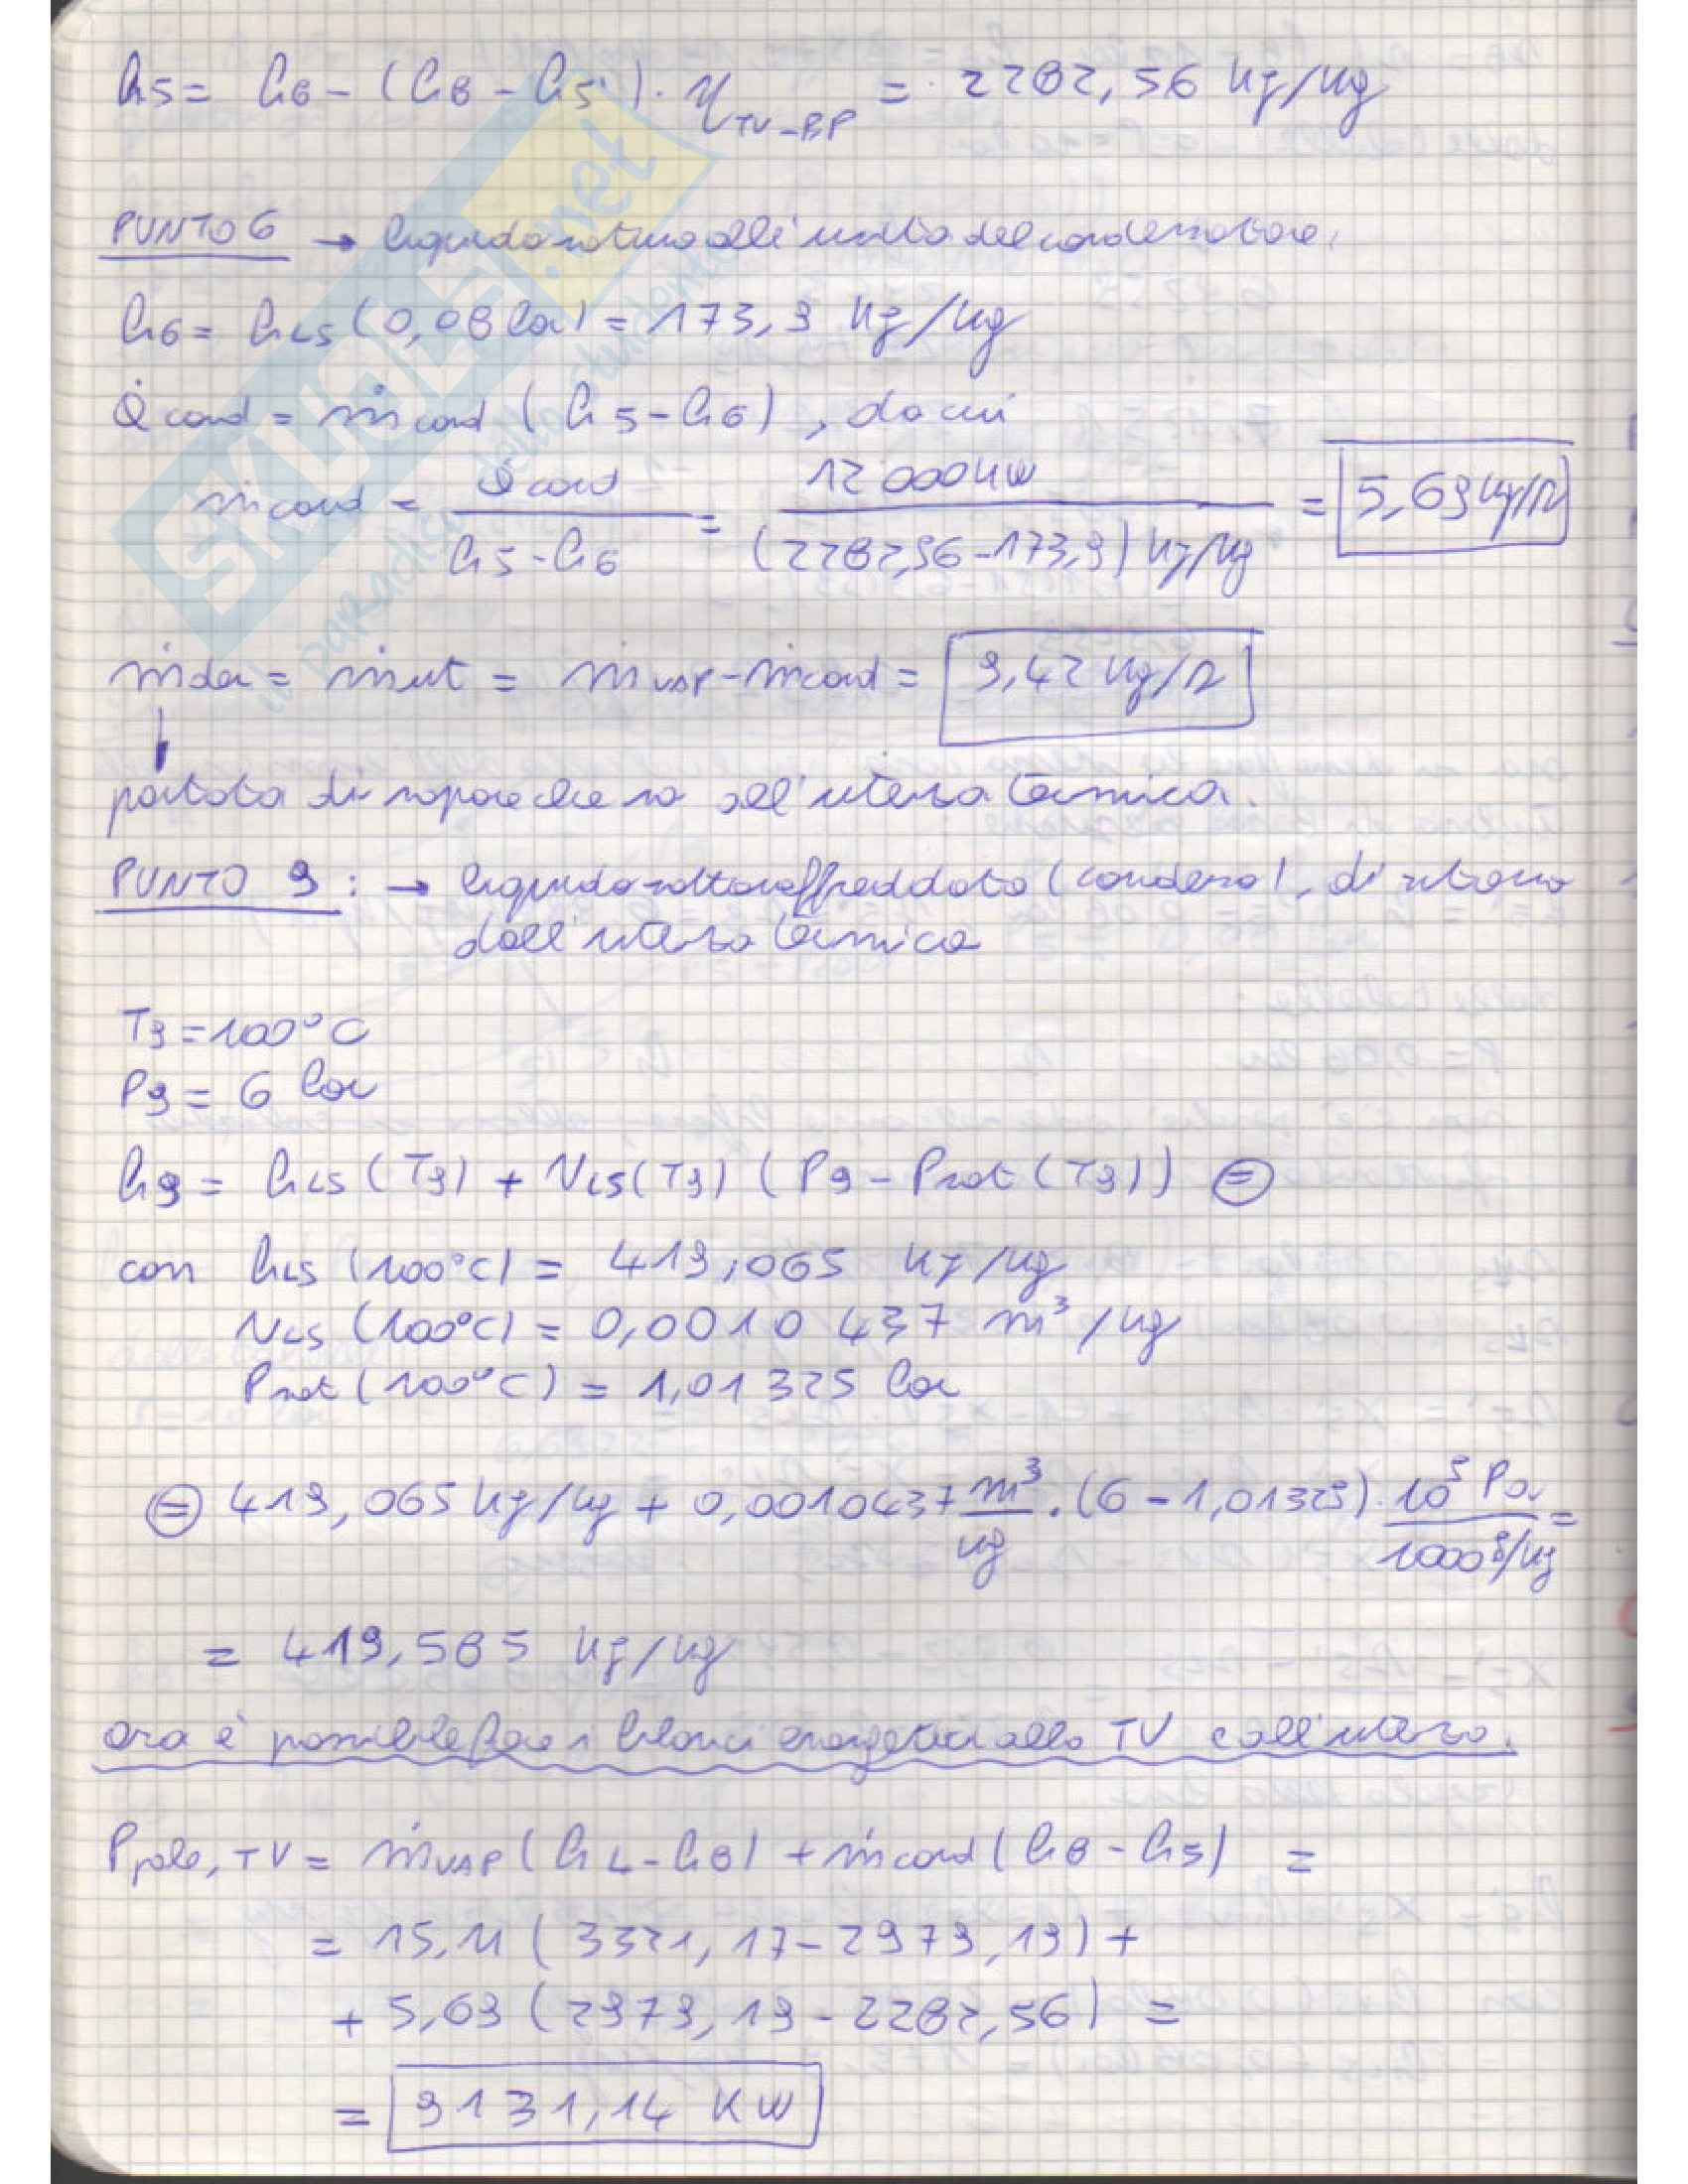 h5 = h8 - (h8 - h5') · η TV-BP = 2282,56 kJ/kg
PUNTO 6 → liquido saturo all'uscita del condensatore.
h6 = hLS (0,08 bar) = 173,9 kJ/kg
Q̇cond = ṁcond (h5 - h6), da cui
ṁcond = Q̇cond / (h5 - h6) = 12000 kW / (2282,56 - 173,9) kJ/kg = 5,69 kg/s
ṁder = ṁut = ṁVAP - ṁcond = 9,42 kg/s
↓
portata di vapore che va all'utenza termica.
PUNTO 9 : → liquido sottoraffreddato (condensa), di ritorno
dall'utenza termica
T9 = 100°C
P9 = 6 bar
h9 = hLS (T9) + vLS (T9) (P9 - Psat (T9)) =
con hLS (100°C) = 419,065 kJ/kg
vLS (100°C) = 0,0010437 m³/kg
Psat (100°C) = 1,01325 bar
= 419,065 kJ/kg + 0,0010437 m³/kg · (6 - 1,01325) · 10⁵ Pa / 1000 J/kg =
= 419,585 kJ/kg
ora è possibile fare i bilanci energetici alla TV e all'utenza.
Ppale, TV = ṁVAP (h4 - h8) + ṁcond (h8 - h5) =
= 15,11 (3321,17 - 2979,19) +
+ 5,69 (2979,19 - 2282,56) =
= 9131,14 KW
SKUOLA.net
il paradiso dello studente